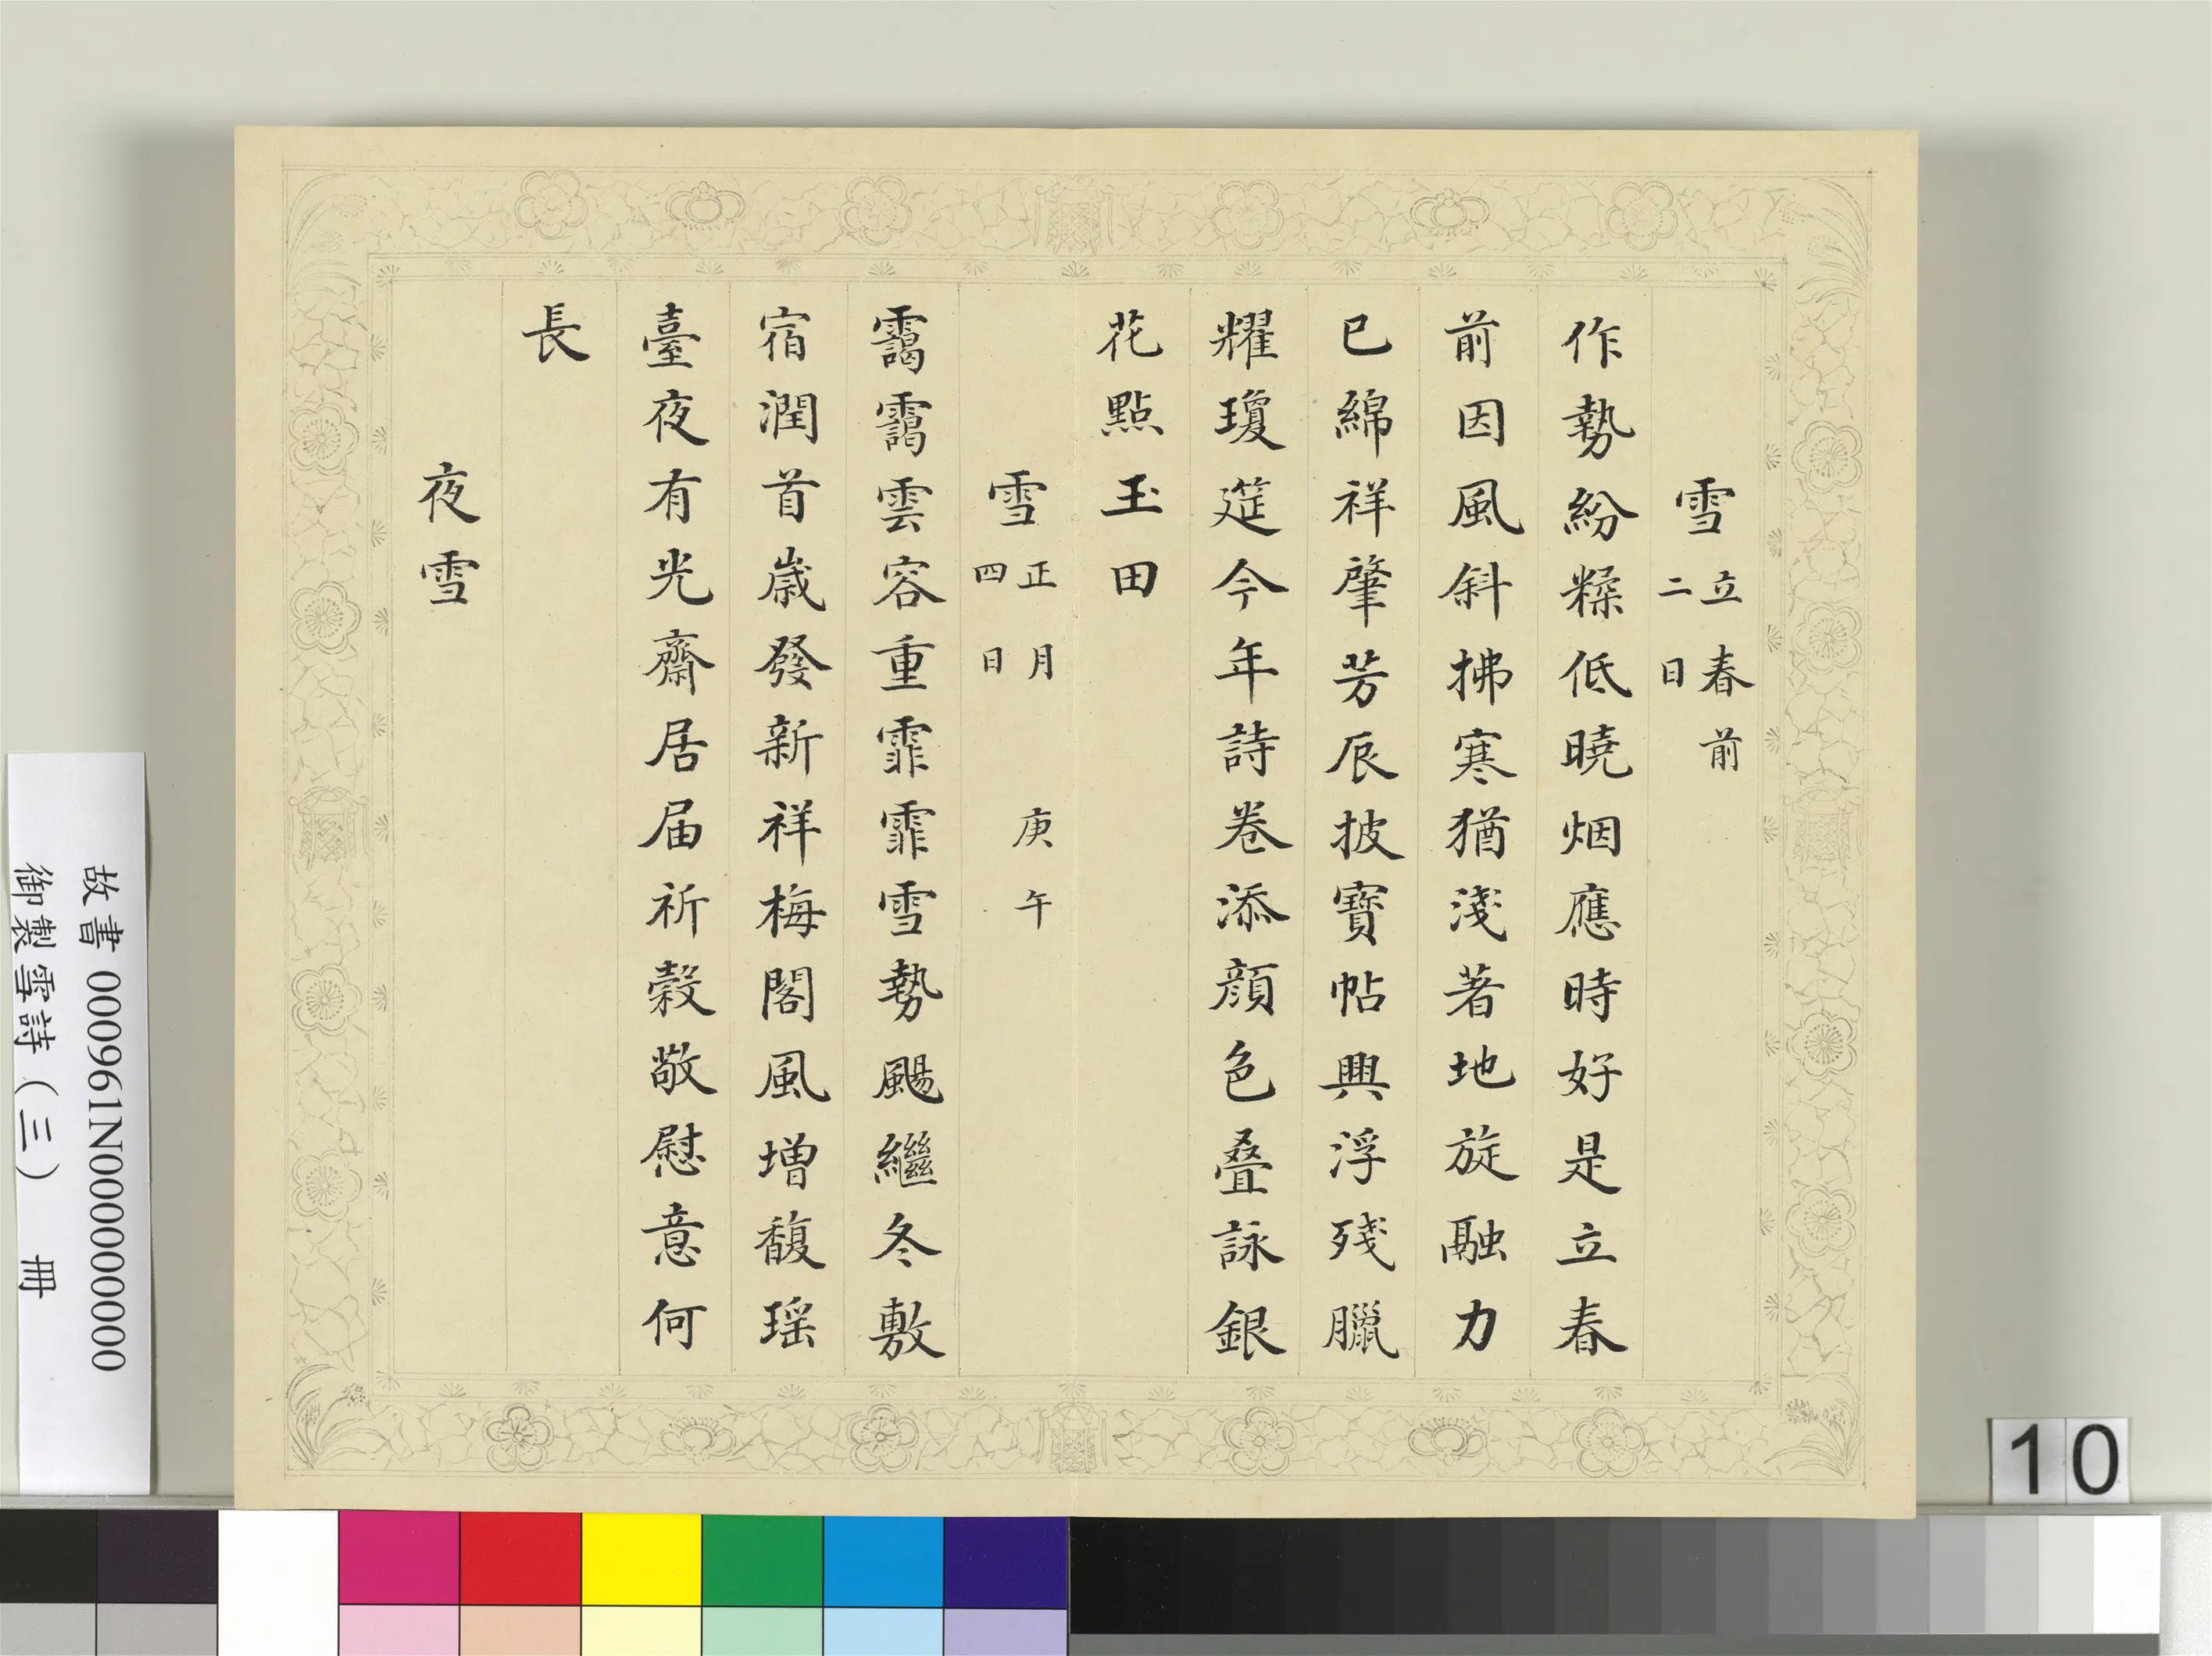 雪 立春前二日
作勢紛糅低曉烟應時好是立春
前因風斜拂寒猶淺著地旋融力
已綿祥肇芳辰披寶帖興浮殘臘
耀瓊筵今年詩卷添顔色叠詠銀
花點玉田
雪 正月四日 庚午
靄靄雲容重霏霏雪勢颺繼冬敷
宿潤首歳發新祥梅閣風增馥瑶
臺夜有光齋居届祈穀敬慰意何
長
夜雪
故書 000961N000000000
御製雪詩（三） 冊
10